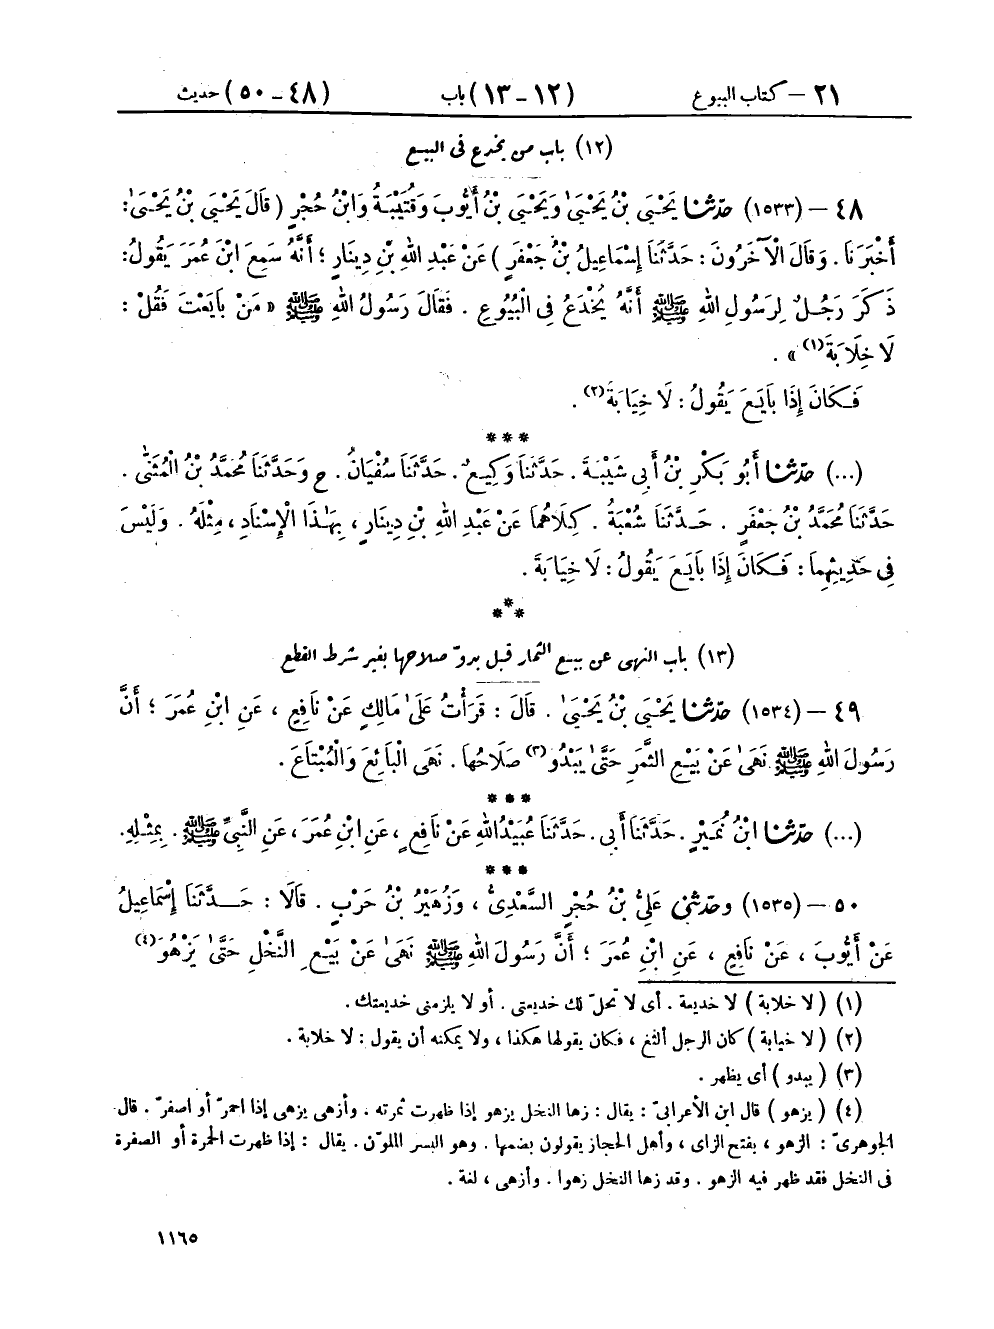 ٢١ – كتاب البيوع (١٢-١٣) باب (٤٨-٥٠) حديث
(١٢) باب من يخدع فى البيع
٤٨ – (١٥٣٣) حدّثنا يَحْيَى بْنُ يَحْيَىٰ وَيَحْيَى بْنُ أَيُّوبَ وَقُتَيْبَةُ وَابْنُ حُجْرٍ ( قَالَ يَحْيَى بْنُ يَحْيَىٰ:
أَخْبَرَنَا. وَقَالَ الْآخَرُونَ: حَدَّثَنَا إِسْمَاعِيلُ بْنُ جَعْفَرٍ) عَنْ عَبْدِ اللهِ بْنِ دِينَارٍ ؛ أَنَّهُ سَمِعَ ابْنَ عُمَرَ يَقُولُ:
ذَكَرَ رَجُلٌ لِرَسُولِ اللهِ ﷺ أَنَّهُ يُخْدَعُ فِى الْبُيُوعِ . فَقَالَ رَسُولُ اللهِ ﷺ « مَنْ بَايَعْتَ فَقُلْ :
لَا خِلَابَةَ(١) » .
فَكَانَ إِذَا بَايَعَ يَقُولُ : لَا خِيَابَةَ(٢) .
***
(...) حدّثنا أَبُو بَكْرِ بْنُ أَبِى شَيْبَةَ . حَدَّثَنَا وَكِيعٌ . حَدَّثَنَا سُفْيَانُ . ح وَحَدَّثَنَا مُحَمَّدُ بْنُ الْمُثَنَّىٰ .
حَدَّثَنَا مُحَمَّدُ بْنُ جَعْفَرٍ . حَدَّثَنَا شُعْبَةُ . كِلَاهُمَا عَنْ عَبْدِ اللهِ بْنِ دِينَارٍ ، بِهَٰذَا الْإِسْنَادِ ، مِثْلَهُ . وَلَيْسَ
فِى حَدِيثِهِمَا : فَكَانَ إِذَا بَايَعَ يَقُولُ : لَا خِيَابَةَ .
***
(١٣) باب النهى عن بيع الثمار قبل بدوّ صلاحها بغير شرط القطع
٤٩ – (١٥٣٤) حدّثنا يَحْيَى بْنُ يَحْيَىٰ . قَالَ : قَرَأْتُ عَلَىٰ مَالِكٍ عَنْ نَافِعٍ ، عَنِ ابْنِ عُمَرَ ؛ أَنَّ
رَسُولَ اللهِ ﷺ نَهَىٰ عَنْ بَيْعِ الثَّمَرِ حَتَّىٰ يَبْدُوَ(٣) صَلَاحُهَا . نَهَى الْبَائِعَ وَالْمُبْتَاعَ .
***
(...) حدّثنا ابْنُ نُمَيْرٍ . حَدَّثَنَا أَبِى . حَدَّثَنَا عُبَيْدُ اللهِ عَنْ نَافِعٍ ، عَنِ ابْنِ عُمَرَ ، عَنِ النَّبِىِّ ﷺ . بِمِثْلِهِ .
***
٥٠ – (١٥٣٥) وحدّثنى عَلِىُّ بْنُ حُجْرٍ السَّعْدِىُّ ، وَزُهَيْرُ بْنُ حَرْبٍ . قَالَا : حَدَّثَنَا إِسْمَاعِيلُ
عَنْ أَيُّوبَ ، عَنْ نَافِعٍ ، عَنِ ابْنِ عُمَرَ ؛ أَنَّ رَسُولَ اللهِ ﷺ نَهَىٰ عَنْ بَيْعِ النَّخْلِ حَتَّىٰ يَزْهُوَ(٤)
(١) ( لا خلابة ) لا خديعة . أى لا تحلّ لك خديعتى . أو لا يلزمنى خديعتك .
(٢) ( لا خيابة ) كان الرجل ألثغ ، فكان يقولها هكذا ، ولا يمكنه أن يقول : لا خلابة .
(٣) ( يبدو ) أى يظهر .
(٤) ( يزهو ) قال ابن الأعرابىّ : يقال : زها النخل يزهو إذا ظهرت ثمرته . وأزهى يزهى إذا احمرّ أو اصفرّ . قال
الجوهرىّ : الزهو ، بفتح الزاى ، وأهل الحجاز يقولون بضمها . وهو البسر الملوّن . يقال : إذا ظهرت الحمرة أو الصفرة
فى النخل فقد ظهر فيه الزهو . وقد زها النخل زهوا . وأزهى ، لغة .
١١٦٥